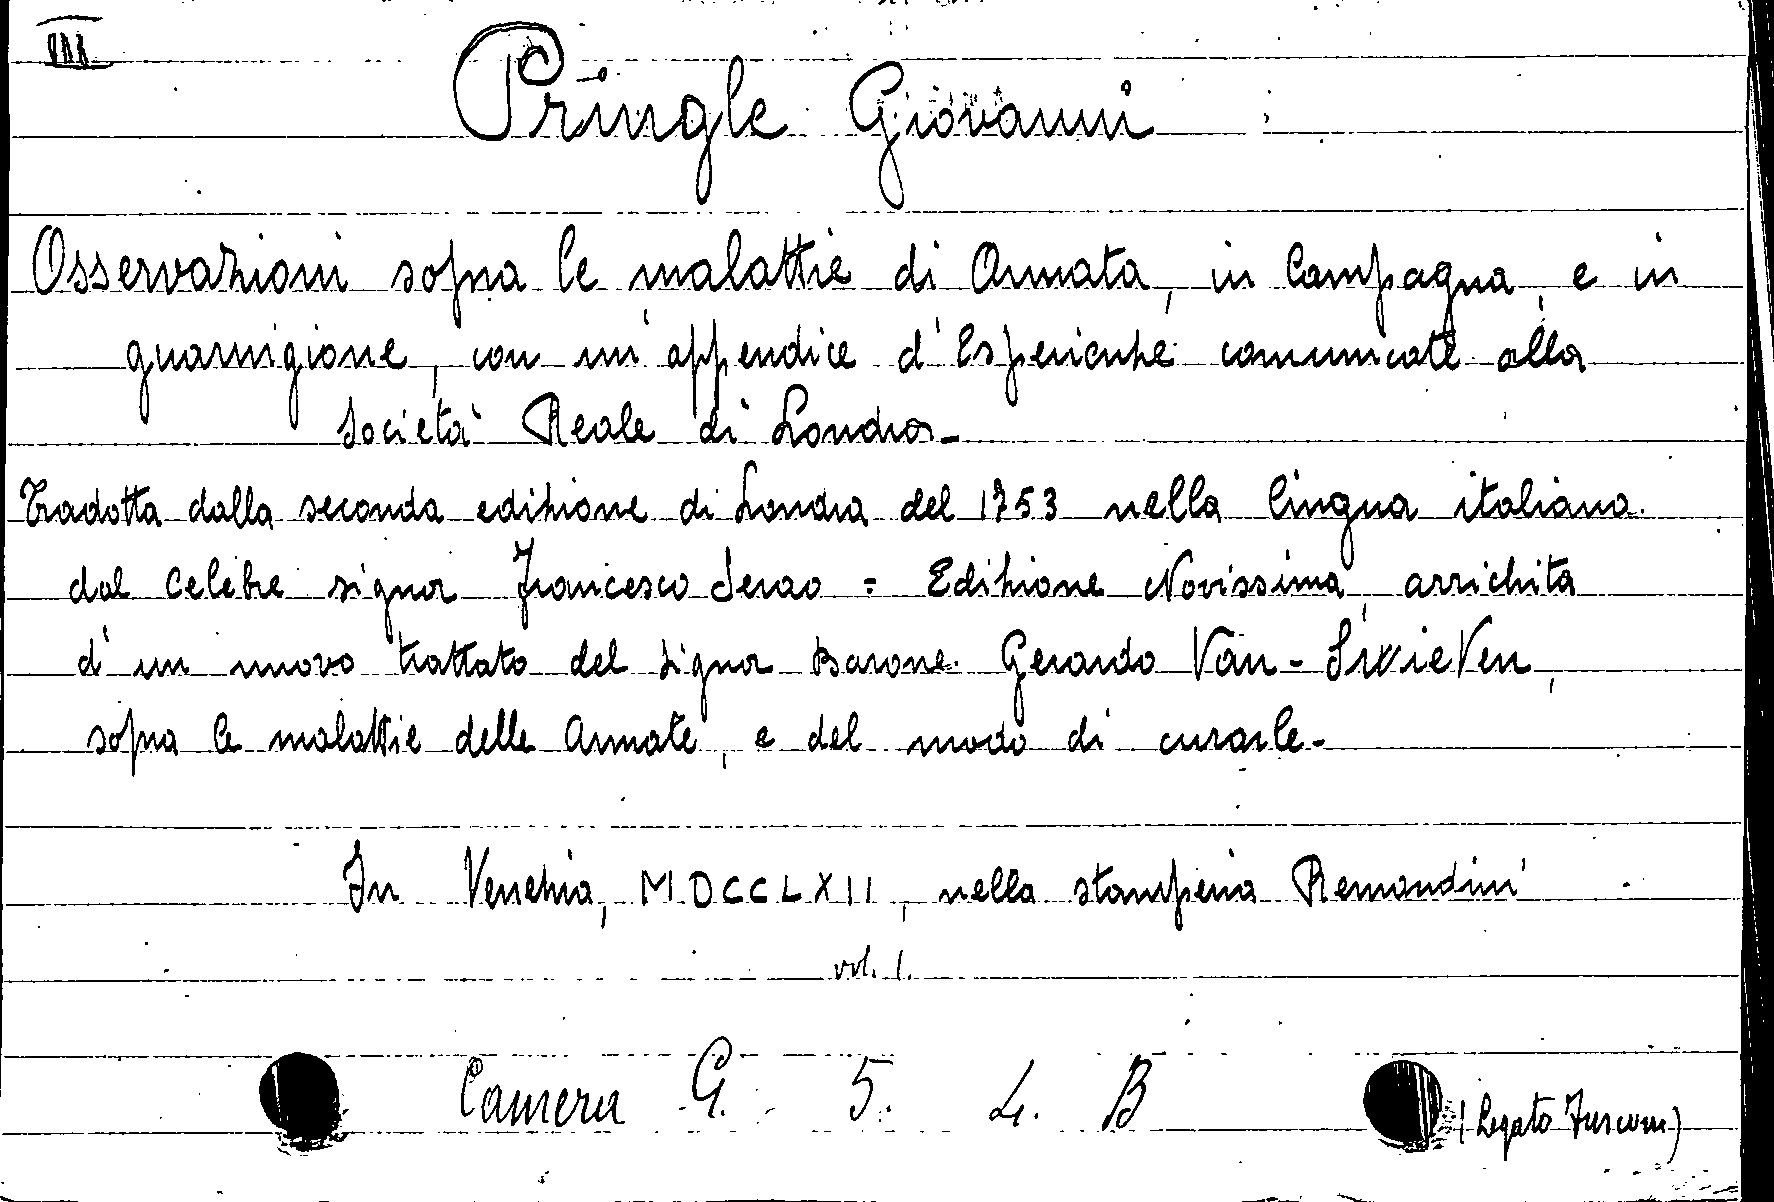 VIII
Pringle Giovanni
Osservazioni sopra le malattie di Armata, in Campagna, e in
guarnigione, con un'appendice d'Esperienze comunicate alla
Società Reale di Londra-
Tradotta dalla seconda edizione di Londra del 1753 nella lingua italiana
dal celebre signor Francesco Serao = Edizione Novissima, arrichita
d'un nuovo trattato del signor Barone Gerardo Van-Swieten,
sopra le malattie delle Armate, e del modo di curarle-
In Venezia, MDCCLXII, nella stamperia Remondini
vol. 1.
Camera G. 5. 4. B
(Legato Fusconi)